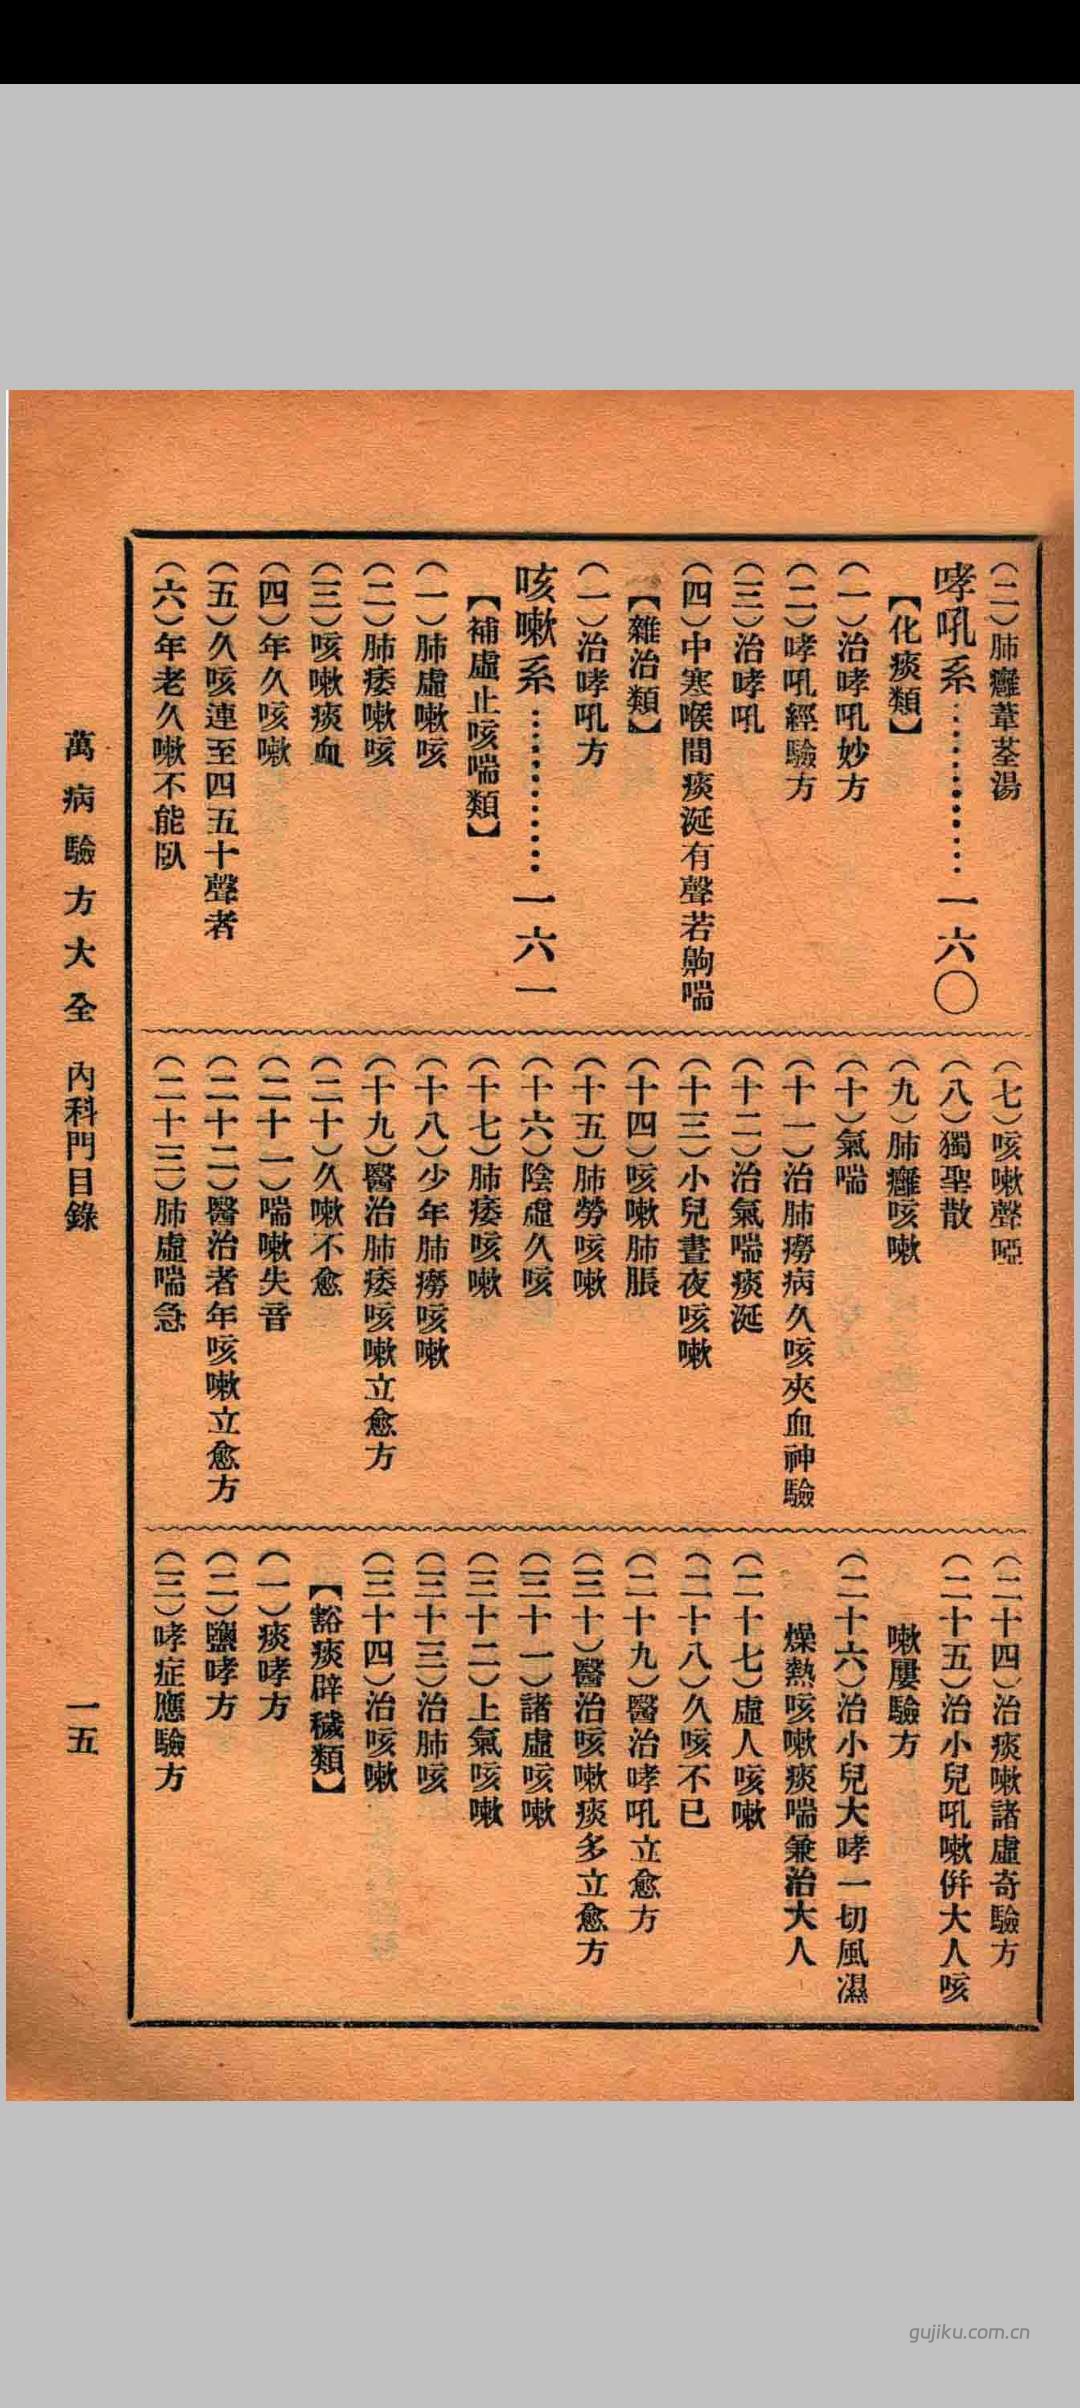 (二)肺癰葦莖湯
哮吼系…………一六〇
【化痰類】
(一)治哮吼妙方
(二)哮吼經驗方
(三)治哮吼
(四)中寒喉間痰涎有聲若齁喘
【雜治類】
(一)治哮吼方
咳嗽系…………一六一
【補虛止咳喘類】
(一)肺虛嗽咳
(二)肺痿嗽咳
(三)咳嗽痰血
(四)年久咳嗽
(五)久咳連至四五十聲者
(六)年老久嗽不能臥
(七)咳嗽聲啞
(八)獨聖散
(九)肺癰咳嗽
(十)氣喘
(十一)治肺癆病久咳夾血神驗
(十二)治氣喘痰涎
(十三)小兒晝夜咳嗽
(十四)咳嗽肺脹
(十五)肺勞咳嗽
(十六)陰虛久咳
(十七)肺痿咳嗽
(十八)少年肺癆咳嗽
(十九)醫治肺痿咳嗽立愈方
(二十)久嗽不愈
(二十一)喘嗽失音
(二十二)醫治耆年咳嗽立愈方
(二十三)肺虛喘急
(二十四)治痰嗽諸虛奇驗方
(二十五)治小兒吼嗽併大人咳
嗽屢驗方
(二十六)治小兒大哮一切風濕
燥熱咳嗽痰喘兼治大人
(二十七)虛人咳嗽
(二十八)久咳不已
(二十九)醫治哮吼立愈方
(三十)醫治咳嗽痰多立愈方
(三十一)諸虛咳嗽
(三十二)上氣咳嗽
(三十三)治肺咳
(三十四)治咳嗽
【豁痰辟穢類】
(一)痰哮方
(二)鹽哮方
(三)哮症應驗方
萬病驗方大全 內科門目錄 一五
gujiku.com.cn